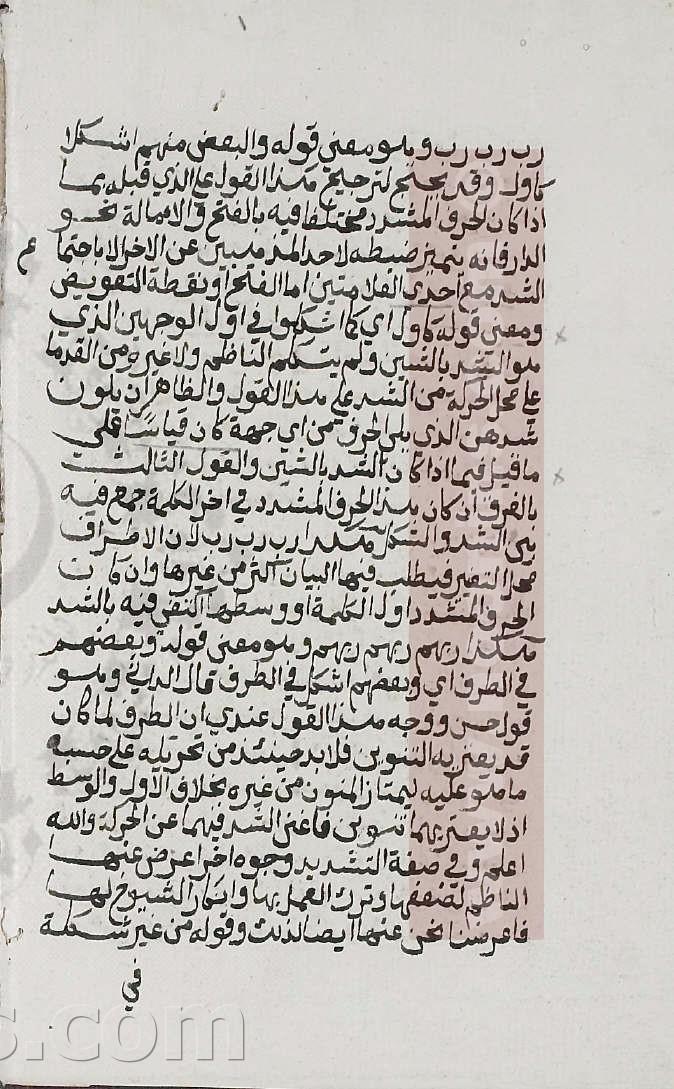 رب رب رب وهو معنى قوله والبعض منهم اشكلا
كاول وقد يحتج لترجيح هذا القول على الذي قبله بما
اذا كان الحرف المشدد مختلفا فيه بالفتح والامالة نحو
الدار فانه يتميز ضبطه لاحد المذهبين عن الاخر الا باجتماع
الشد مع احدى العلامتين اما الفتح او نقطة التعويض
ومعنى قوله كاول اي كما اشكلوا في اول الوجهين الذي
هو الشد بالشين ولم يتكلم الناظم ولا غيره من القدما
على محل الحركة من الشد على هذا القول والظاهر ان يكون
شدهن الذي يلي الحرف من اي جهة كان قياسا على
ما قيل فيما اذا كان الشد بالشين والقول الثالث
بالفرق ان كان هذا الحرف المشدد في اخر الكلمة جمع فيه
بين الشد والشكل هكذا رب رب رب لان الاطراف
محل التغير فيطلب فيها البيان اكثر من غيرها وان كان
الحرف المشدد اول الكلمة او وسطها اكتفى فيه بالشد
هكذا ربهم ربهم ربهم وهو معنى قوله وبعضهم
في الطرف اي وبعضهم اشكل في الطرف قال الداني وهو
قول حسن ووجه هذا القول عندي ان الطرف لما كان
قد يعتريه التنوين فلا بد حينئذ من تحريكه على حسب
ما هو عليه ليمتاز المنون من غيره بخلاف الاول والوسط
اذ لا يعتريهما تنوين فاغنى الشد فيهما عن الحركة والله
اعلم وفي صفة التشديد وجوه اخر اعرض عنها
الناظم لضعفها وترك العمل بها وانكار الشيوخ لها
فاعرضنا نحن عنها ايضا لذلك وقوله من غير شكلة
في
s.com